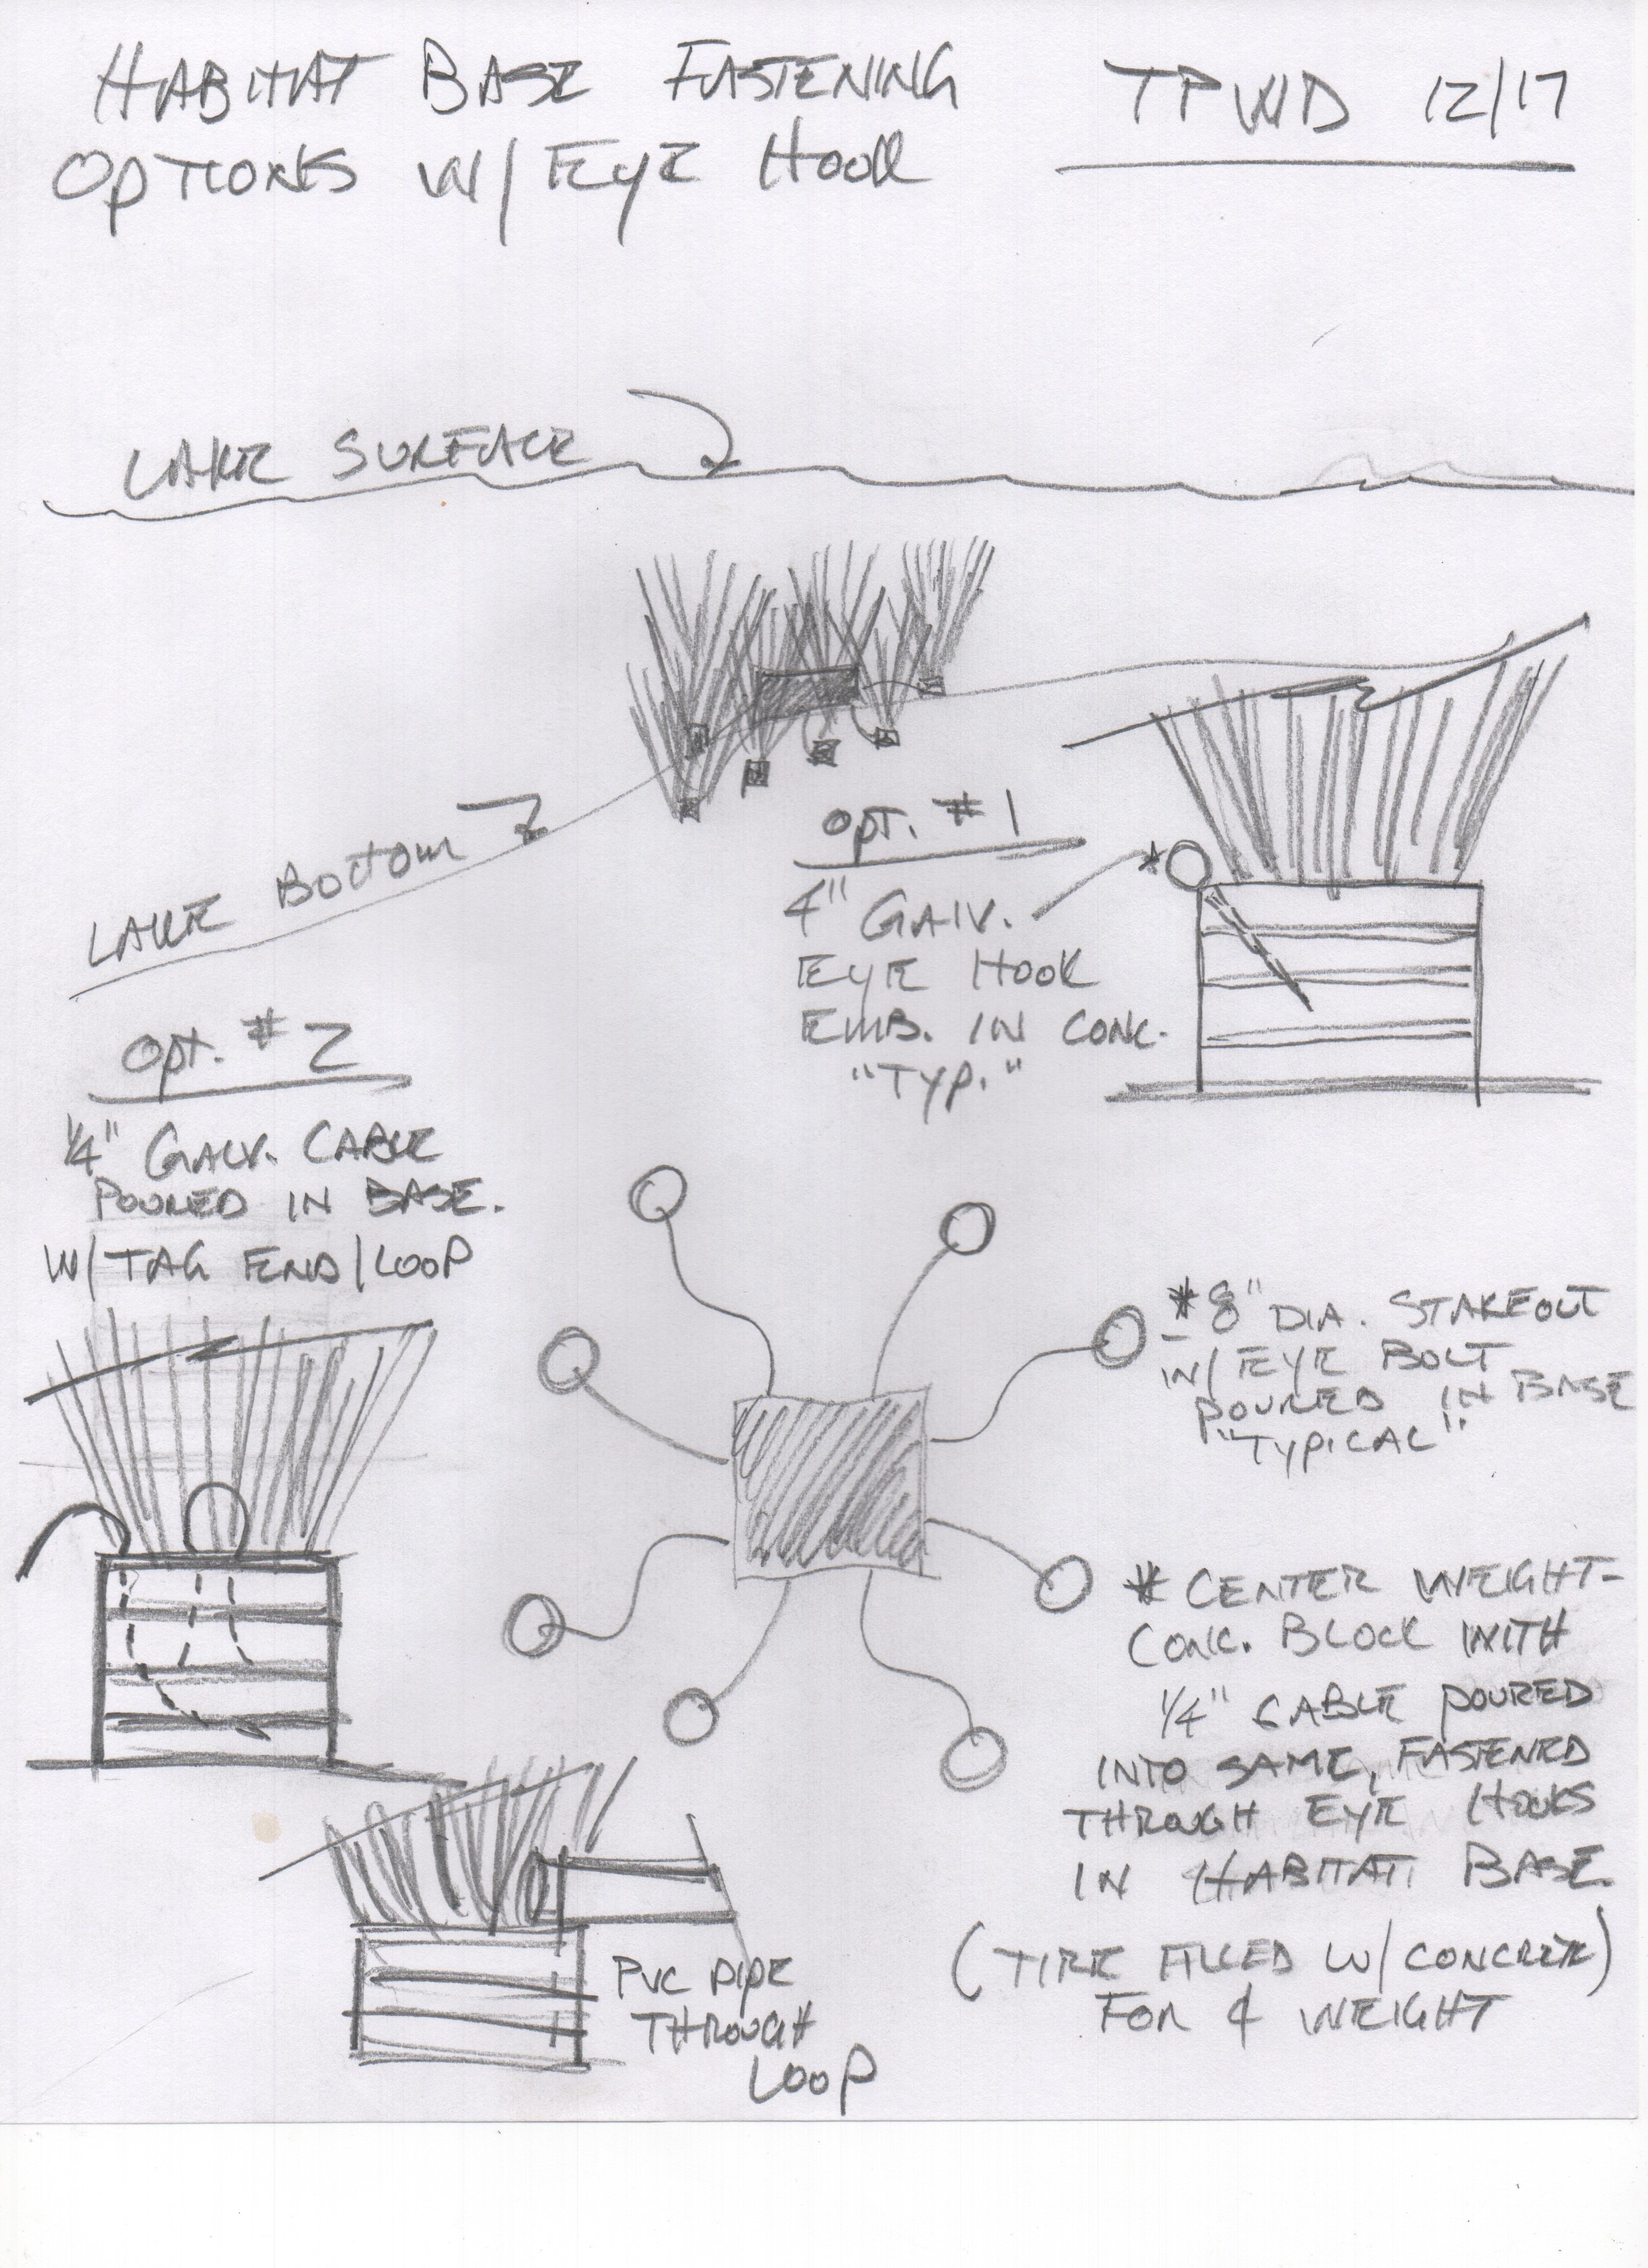 HABITAT BASE FASTENING
OPTIONS W/ EYE HOOK
TPWD 12/17
LAKE SURFACE
LAKE BOTTOM
OPT. #1
4" GALV.
EYE HOOK
EMB. IN CONC.
"TYP."
OPT. #2
1/4" GALV. CABLE
POURED IN BASE.
W/ TAG END/LOOP
* 8" DIA. STAKEOUT
W/ EYE BOLT
POURED IN BASE
"TYPICAL"
* CENTER WEIGHT-
CONC. BLOCK WITH
1/4" CABLE POURED
INTO SAME, FASTENED
THROUGH EYE HOOKS
IN HABITAT BASE.
(TIRE FILLED W/ CONCRETE)
FOR ¢ WEIGHT
PVC PIPE
THROUGH
LOOP